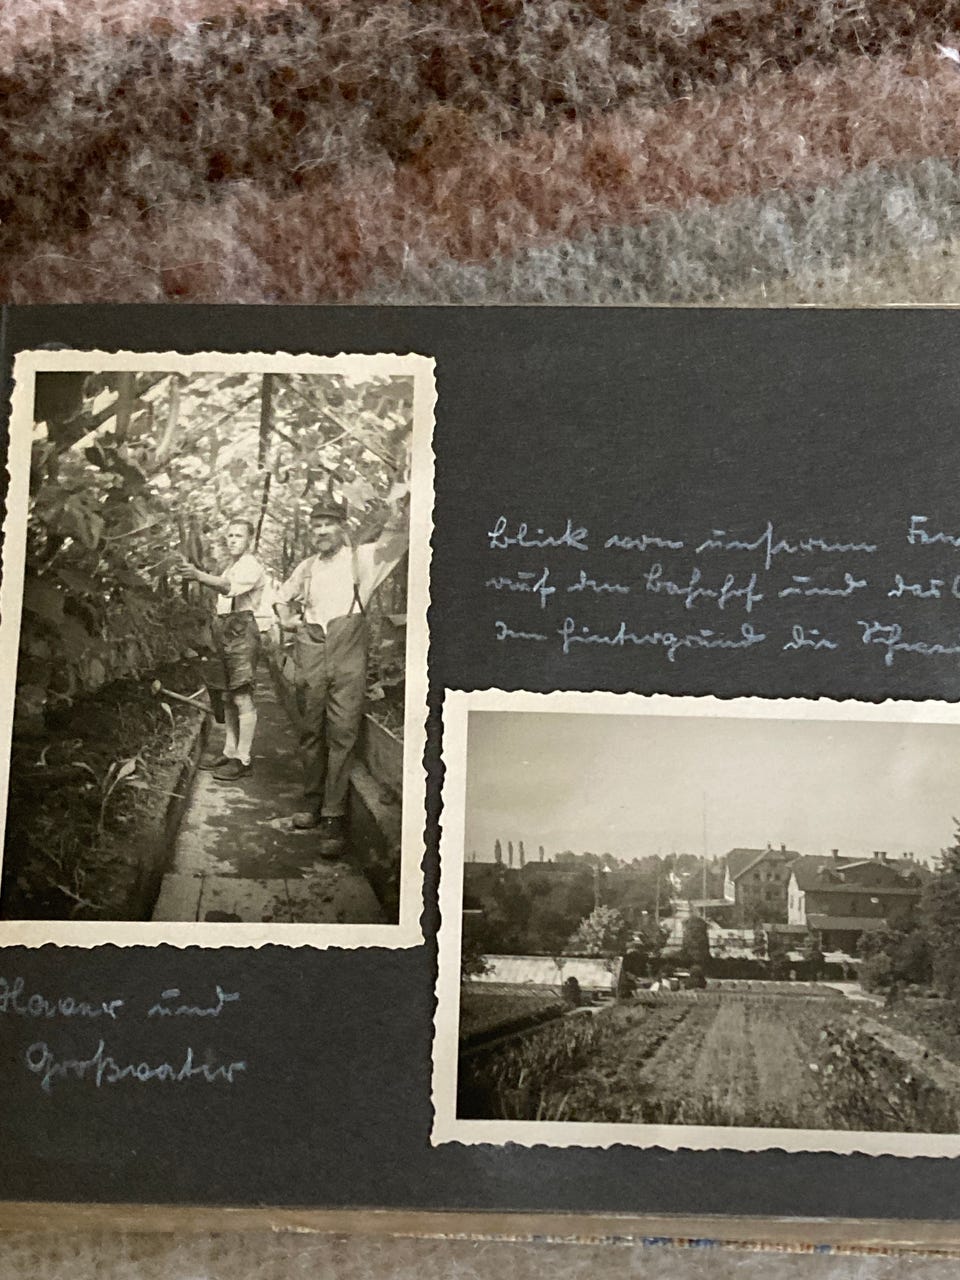 Blick von unserem
auf den Bahnhof und das
Im Hintergrund die
und
Großvater